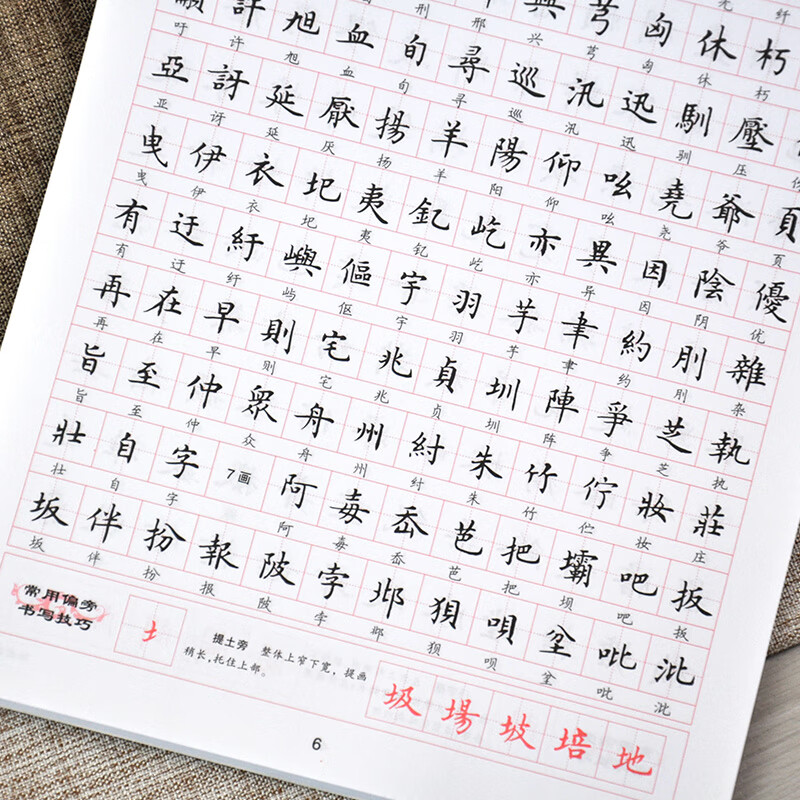 刑 邢 兴 芎 匈 休 朽
許 旭 血 旬 尋 巡 汛 迅 馴 壓
吁 许 旭 血 旬 寻 巡 汛 迅 驯 压
亞 訝 延 厭 揚 羊 陽 仰 吆 堯 爺 頁
亚 讶 延 厌 扬 羊 阳 仰 吆 尧 爷 页
曳 伊 衣 圯 夷 釔 屹 亦 異 因 陰 優
曳 伊 衣 圯 夷 钇 屹 亦 异 因 阴 优
有 迂 紆 嶼 傴 宇 羽 芋 聿 約 刖 雜
有 迂 纡 屿 伛 宇 羽 芋 聿 约 刖 杂
再 在 早 則 宅 兆 貞 圳 陣 爭 芝 執
再 在 早 则 宅 兆 贞 圳 阵 争 芝 执
旨 至 仲 眾 舟 州 紂 朱 竹 佇 妝 莊
旨 至 仲 众 舟 州 纣 朱 竹 伫 妆 庄
壯 自 字 7画 阿 毐 岙 芭 把 壩 吧 扳
壮 自 字 阿 毐 岙 芭 把 坝 吧 扳
坂 伴 扮 報 陂 孛 邶 狽 唄 坌 吡 沘
坂 伴 扮 报 陂 孛 邶 狈 呗 坌 吡 沘
常用偏旁
书写技巧
土
提土旁 整体上窄下宽，提画
稍长，托住上部。
圾 場 坡 培 地
6